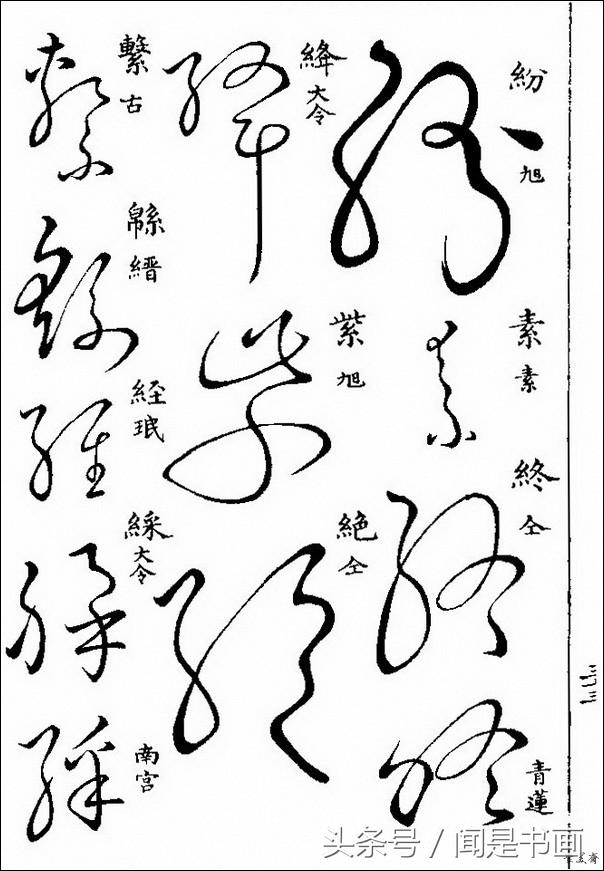 紛 旭
素 素
終 仝
青蓮
絳 大令
紫 旭
絶 仝
繫 古
緜 縉
経 珉
綵 大令
南宮
头条号 / 闻是书画